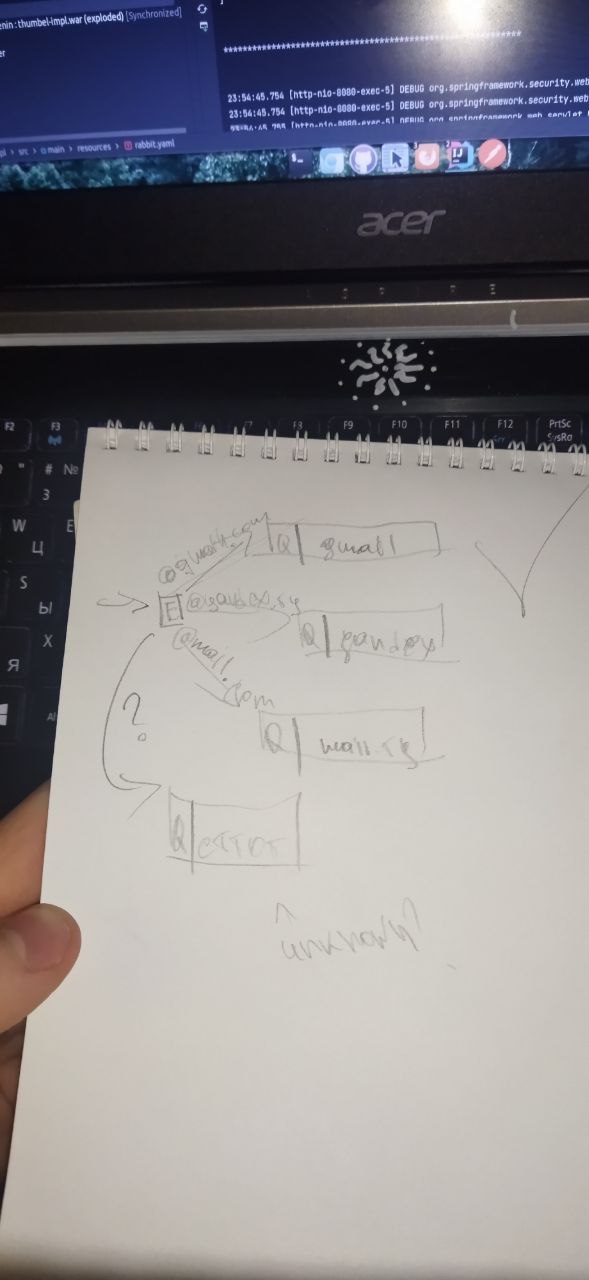 enin : thumbel-impl.war (exploded) [Synchronized]
er
**************************************************************
23:54:45.754 [http-nio-8080-exec-5] DEBUG org.springframework.security.web
23:54:45.754 [http-nio-8080-exec-5] DEBUG org.springframework.security.web
pl > src > main > resources > rabbit.yaml
acer
F2 F3 F8 F9 F10 F11 F12 PrtSc
SysRq
" # №
3
W E
Ц
S
Ы
X
Я
Al
@gmail.com
Q gmail
E @yandex.ru
Q yandex
@mail.com
?
Q mail.ru
Q error
unknown?